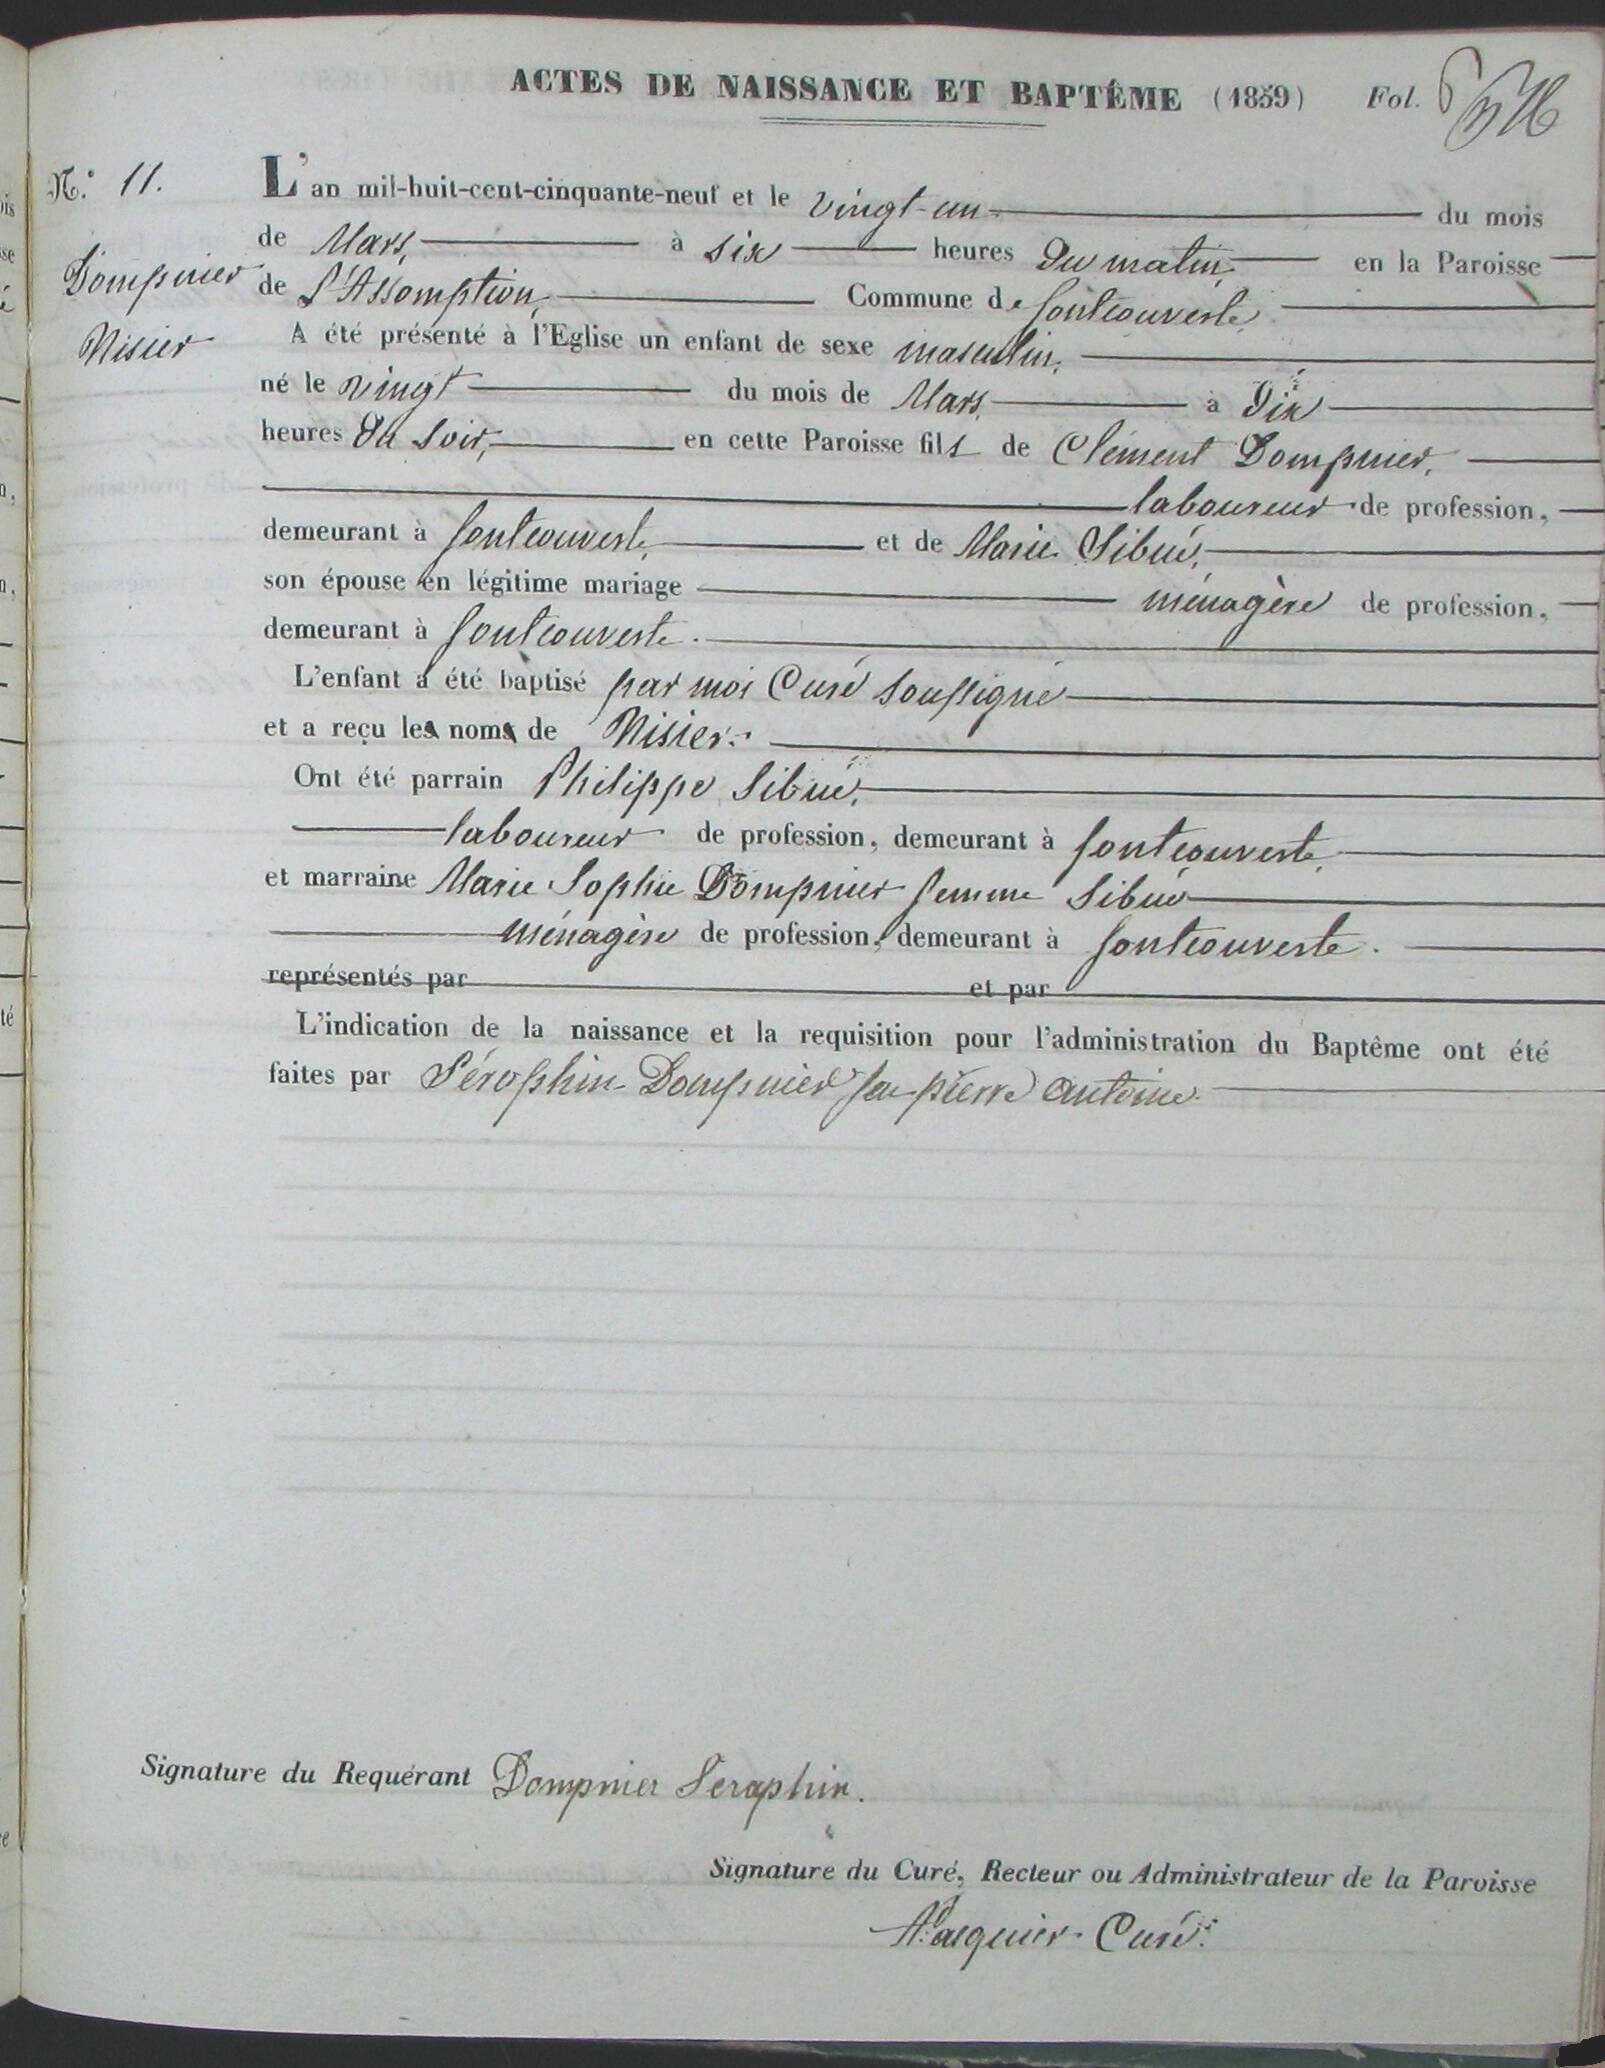 ACTES DE NAISSANCE ET BAPTÊME (1859) Fol. 6
N.º 11.
Dompnier
Nisier
L'an mil-huit-cent-cinquante-neuf et le vingt-un du mois
de Mars, à six heures du matin, en la Paroisse
de L'Assomption, Commune de fontcouverte,
A été présenté à l'Eglise un enfant de sexe masculin,
né le vingt du mois de Mars, à dix
heures du soir, en cette Paroisse fils de Clément Dompnier,
laboureur de profession,
demeurant à fontcouverte, et de Marie Sibué,
son épouse en légitime mariage ménagère de profession,
demeurant à fontcouverte.
L'enfant a été baptisé par moi Curé soussigné
et a reçu les noms de Nisier.
Ont été parrain Philippe Sibué,
laboureur de profession, demeurant à fontcouverte,
et marraine Marie Sophie Dompnier femme Sibué
ménagère de profession, demeurant à fontcouverte.
représentés par et par
L'indication de la naissance et la requisition pour l'administration du Baptême ont été
faites par Sérophin Dompnier feu pierre antoine.
Signature du Requérant Dompnier Seraphin.
Signature du Curé, Recteur ou Administrateur de la Paroisse
Pasquier Curé.